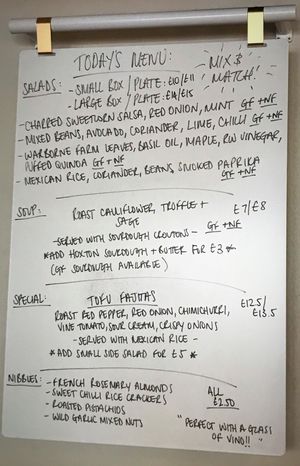 TODAY'S MENU:
SALADS: - SMALL BOX / PLATE: £10/£11
- LARGE BOX / PLATE: £14/£15
MIX &
MATCH!
- CHARRED SWEETCORN SALSA, RED ONION, MINT GF + NF
- MIXED BEANS, AVOCADO, CORIANDER, LIME, CHILLI GF + NF
- WARBORNE FARM LEAVES, BASIL OIL, MAPLE, RW VINEGAR,
PUFFED QUINOA GF + NF
- MEXICAN RICE, CORIANDER, BEANS, SMOKED PAPRIKA
GF + NF
SOUP: ROAST CAULIFLOWER, TRUFFLE + £7/£8
SAGE
- SERVED WITH SOURDOUGH CROUTONS - GF + NF
* ADD HOXTON SOURDOUGH + BUTTER FOR £3 *
(GF SOURDOUGH AVAILABLE)
SPECIAL: TOFU FAJITAS £12.5/
£13.5
ROAST RED PEPPER, RED ONION, CHIMICHURRI,
VINE TOMATO, SOUR CREAM, CRISPY ONIONS
- SERVED WITH MEXICAN RICE -
* ADD SMALL SIDE SALAD FOR £5 *
NIBBLES: - FRENCH ROSEMARY ALMONDS
- SWEET CHILLI RICE CRACKERS
- ROASTED PISTACHIOS
- WILD GARLIC MIXED NUTS
ALL
£2.50
"PERFECT WITH A GLASS
OF VINO!!"